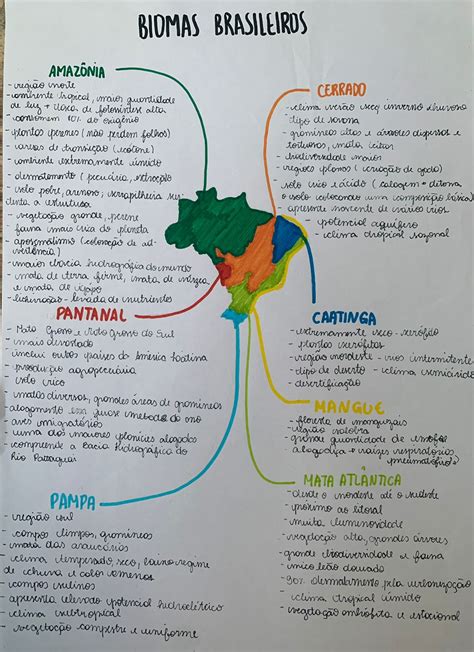 BIOMAS BRASILEIROS
AMAZÔNIA
- região norte
- ambiente tropical, maior quantidade
de luz + taxa de fotossíntese alta
- consomem 80% do oxigênio
- plantas perenes (não perdem folhas)
- áreas de transição (ecótone)
- ambiente extremamente úmido
- desmatamento (pecuária, extração
- solo pobre, arenoso; serrapilheira sus-
tenta a estrutura
- vegetação grande, perene
- fauna mais rica do planeta
- maior bacia hidrográfica do mundo
- mata de terra firme, mata de várzea
e mata de igapó
- lixiviação - levada de nutrientes
PANTANAL
- Mato Grosso e Mato Grosso do Sul
- mais devastado
- inclui outros países da América Latina
- produção agropecuária
- solo rico
- matas diversas, grandes áreas de gramíneas
- alagamento por quase metade do ano
- aves migratórias
- uma das maiores planícies alagadas
- compreende a bacia hidrográfica do
Rio Paraguai
PAMPA
- região sul
- campos limpos, gramíneas
- mata das araucárias
- clima temperado, seco, baixo regime
de chuva e calor
- campos sulinos
- apresenta elevado potencial hidroelétrico
- clima subtropical
- vegetação campestre e uniforme
CERRADO
- clima verão inverno chuvoso
- tipo de savana
- gramíneas altas e árvores dispersas e
tortuosas, mata ciliar
- biodiversidade maior
- regiões planas (criação de gado)
- solo rico e ácido (
o solo colocando uma composição básica)
- apresenta nascente de vários rios
- potencial aquífero
- clima tropical sazonal
CAATINGA
- extremamente seco - xerófilo
- plantas xerófitas
- região nordeste - rios intermitentes
- tipo de deserto - clima semiárido
- desertificação
MANGUE
- floresta de manguezais
- região salobra
- grande quantidade de
alagadiça e raízes respiratórias
pneumatóforos
MATA ATLÂNTICA
- desde o nordeste até o sudeste
- próximo ao litoral
- muita luminosidade
- vegetação alta, grandes árvores
- grande biodiversidade e fauna
- mico leão dourado
- 90% desmatamento pela urbanização
- clima tropical úmido
- vegetação ombrófita e estacional